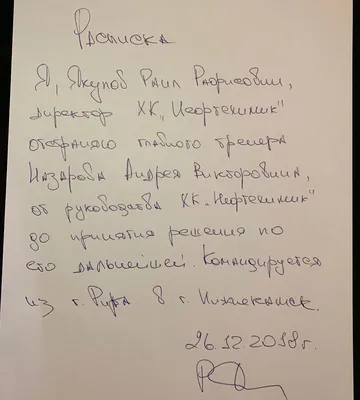 Расписка
Я, Якупов Раил Рафисович,
директор ХК „Нефтехимик"
отстраняю главного тренера
Назарова Андрея Викторовича,
от руководства ХК „Нефтехимик"
до принятия решения по
его дальнейшей. Командируется
из г. Рига в г. Нижнекамск.
26.12.2018г.